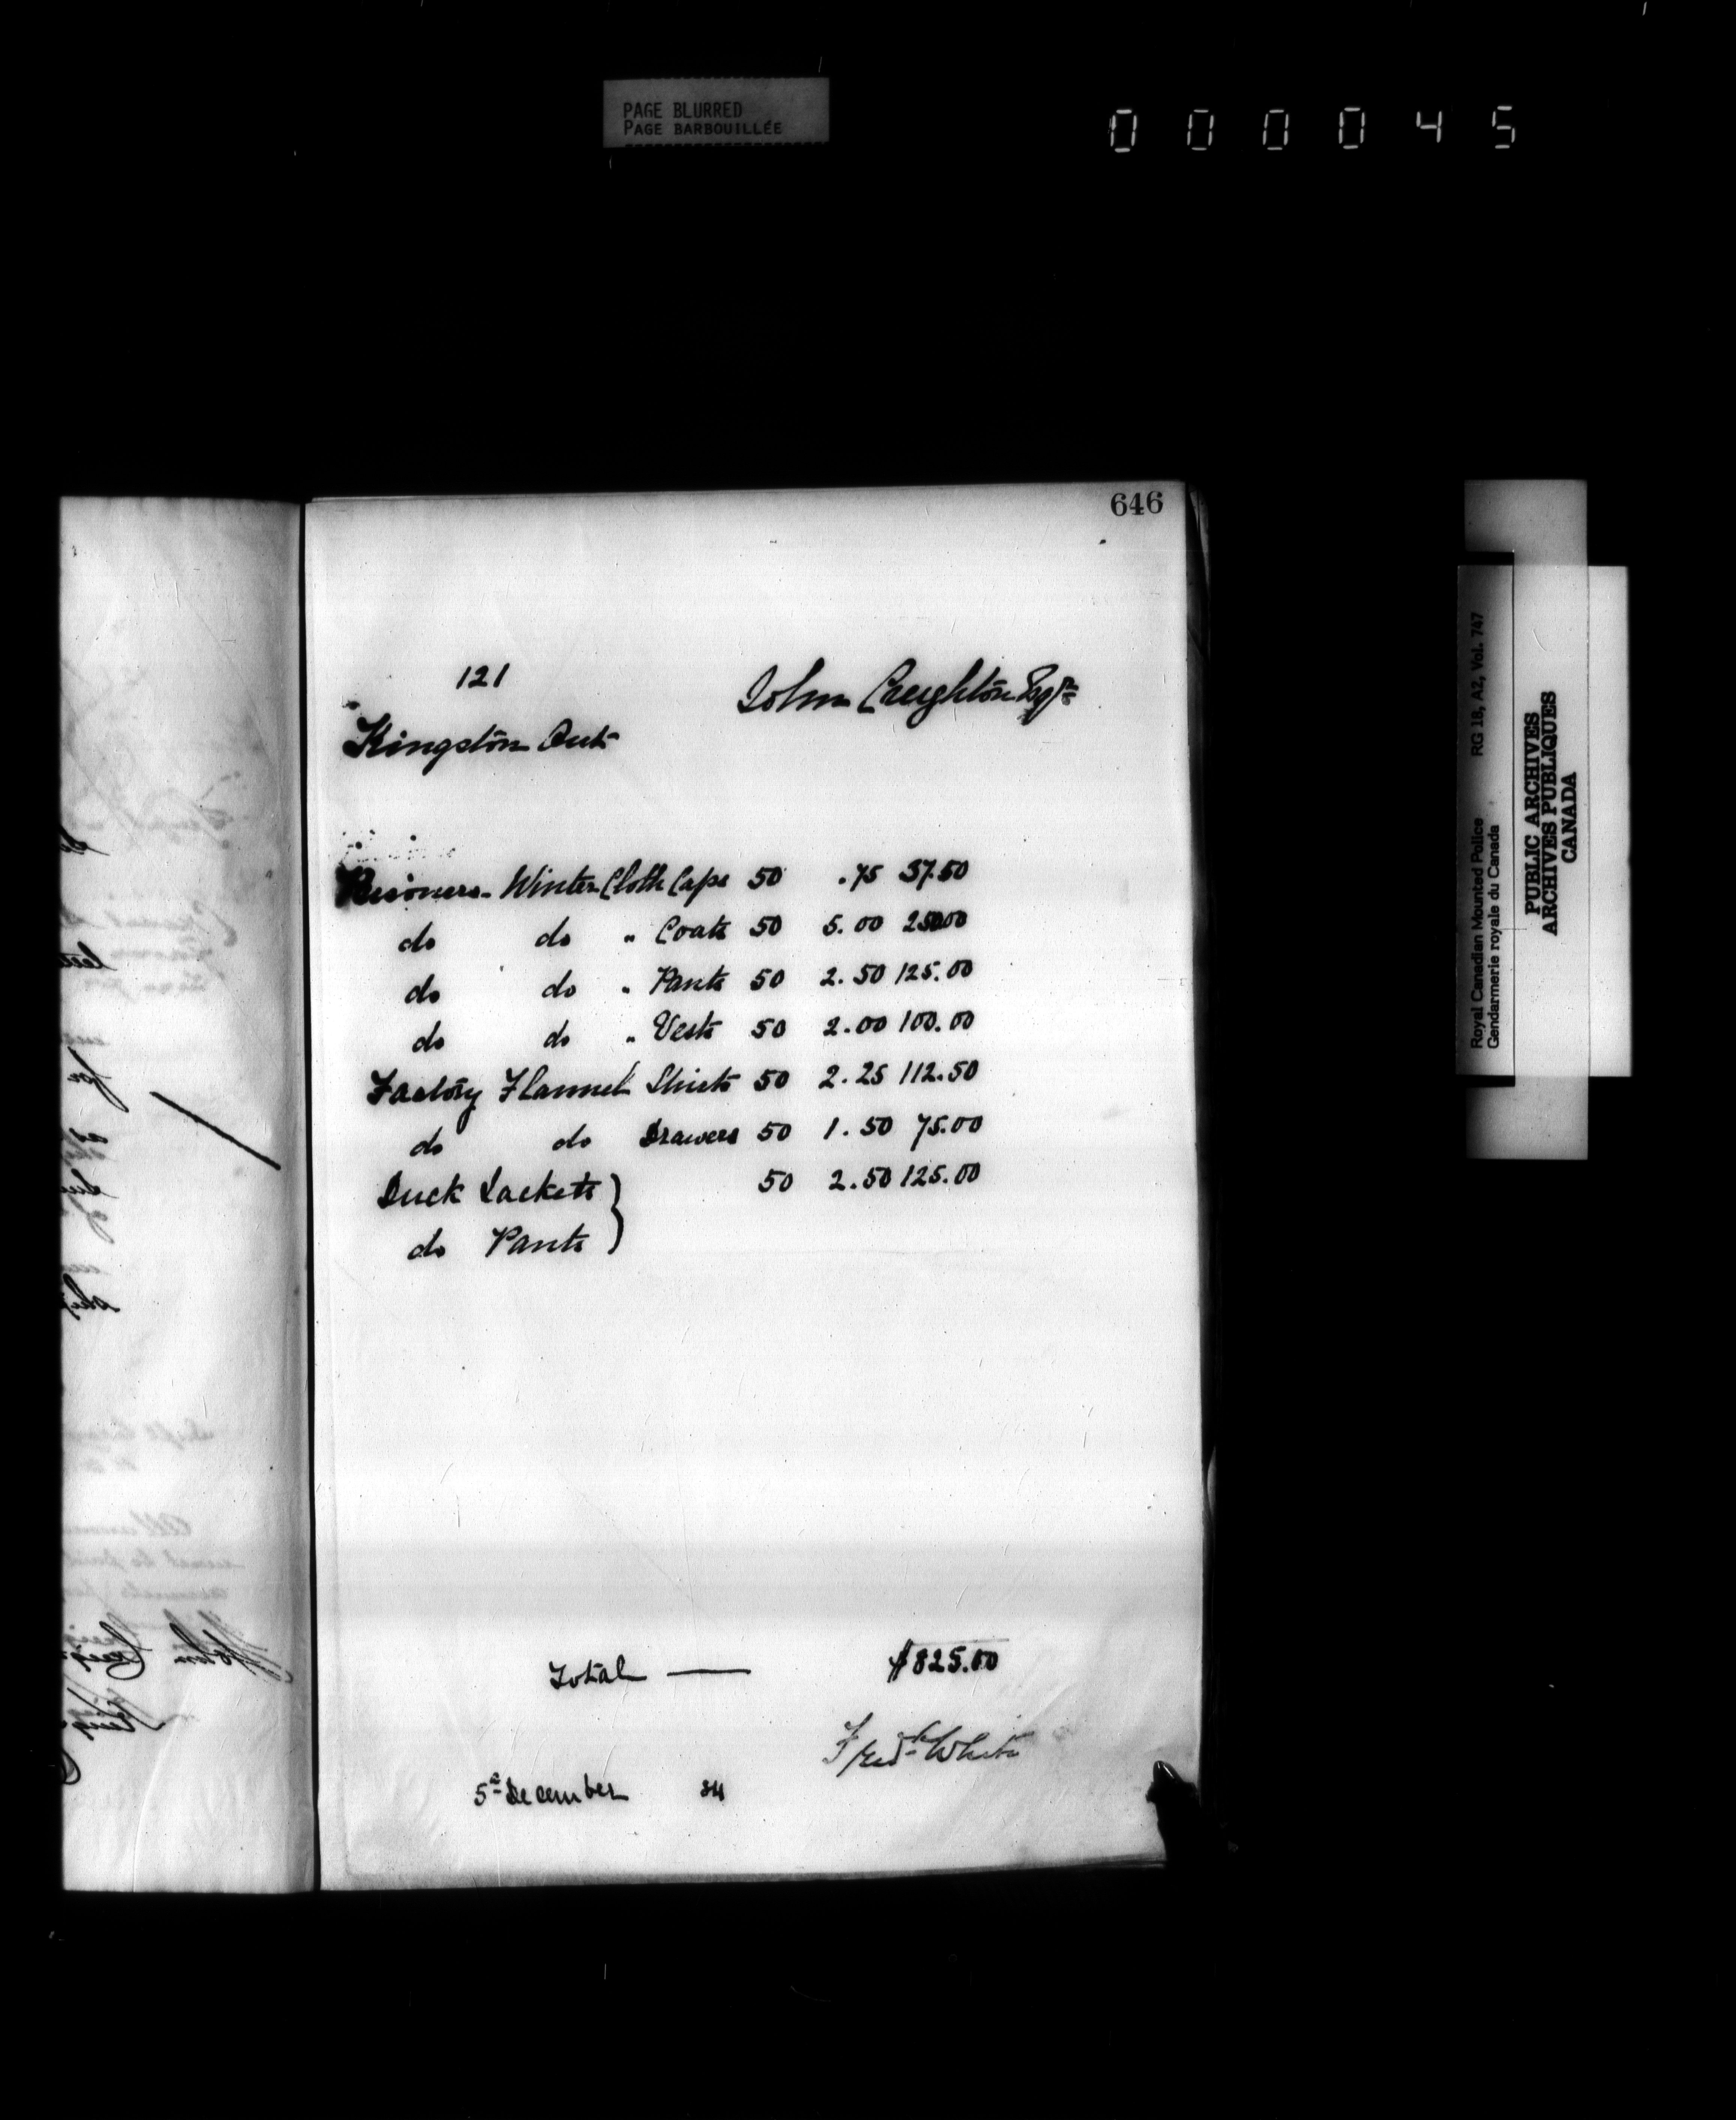 PAGE BLURRED
PAGE BARBOUILLÉE
000045
646
121
John Creighton Esqre
Kingston Ont
Prisoners Winter Cloth Caps 50 .75 37.50
do do " Coats 50 5.00 250.00
do do " Pants 50 2.50 125.00
do do " Vests 50 2.00 100.00
Factory Flannel Shirts 50 2.25 112.50
do do Drawers 50 1.50 75.00
Duck Jackets } 50 2.50 125.00
do Pants }
Total — $825.00
Fredk White
5th December 84
Royal Canadian Mounted Police RG 18, A2, Vol. 747
Gendarmerie royale du Canada
PUBLIC ARCHIVES
ARCHIVES PUBLIQUES
CANADA